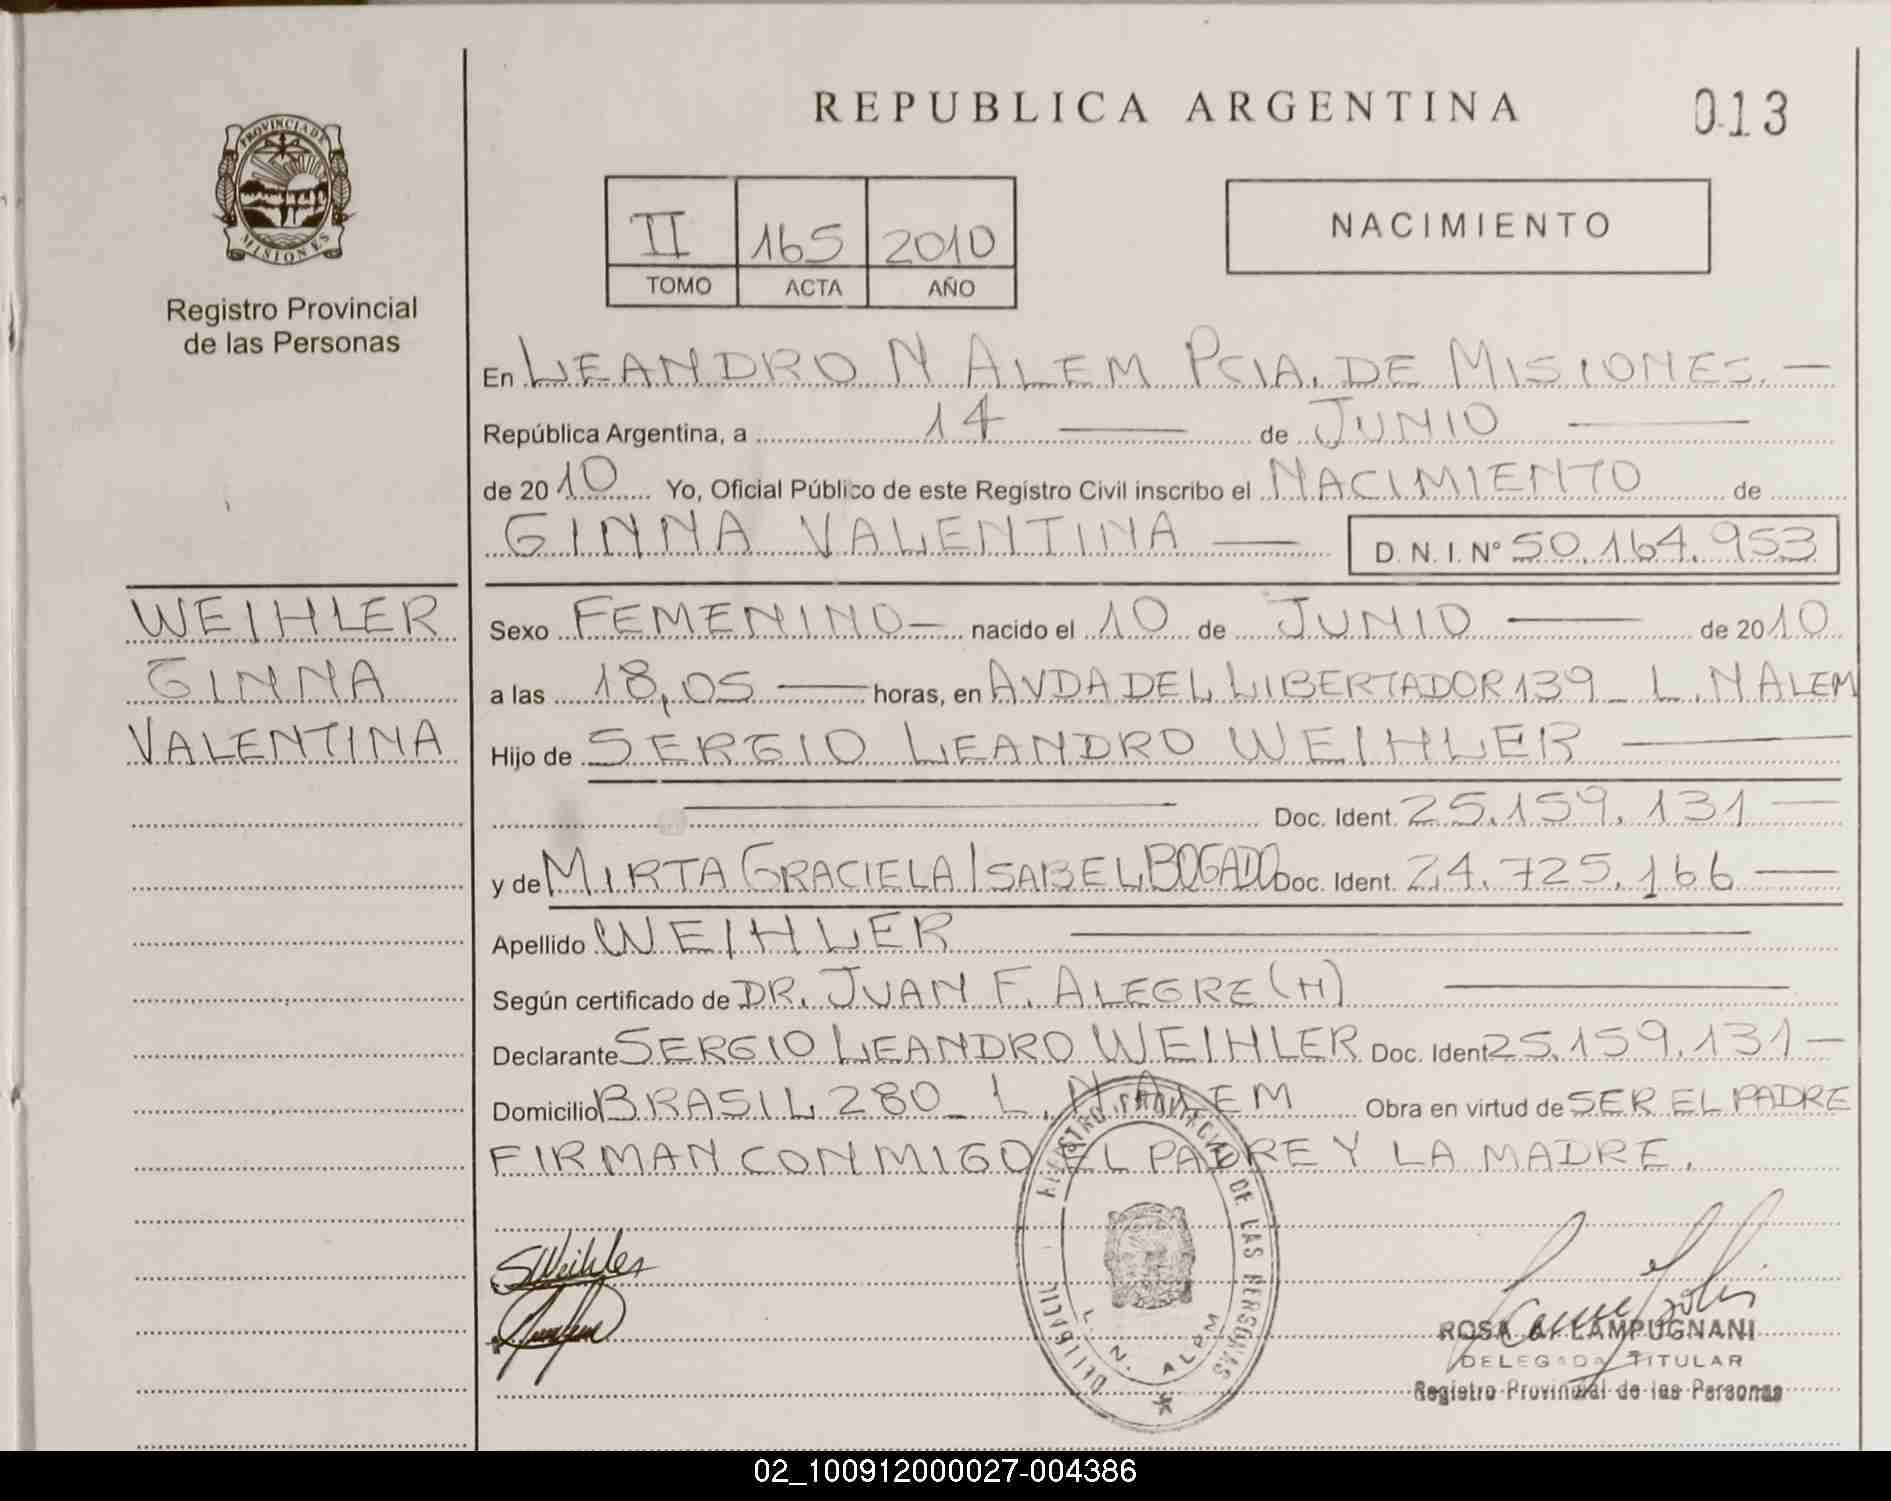 REPUBLICA ARGENTINA
013
PROVINCIA DE
MISIONES
Registro Provincial
de las Personas
II 165 2010
TOMO ACTA AÑO
NACIMIENTO
En LEANDRO N ALEM PCIA. DE MISIONES.—
República Argentina, a 14 — de JUNIO —
de 2010 Yo, Oficial Público de este Registro Civil inscribo el NACIMIENTO de
GINNA VALENTINA — D. N. I. N° 50.164.953
WEIHLER
GINNA
VALENTINA
Sexo FEMENINO— nacido el 10 de JUNIO — de 2010
a las 18,05 — horas, en AVDA DEL LIBERTADOR 139_ L.N ALEM
Hijo de SERGIO LEANDRO WEIHLER —
— Doc. Ident. 25.159.131 —
y de MIRTA GRACIELA ISABEL BOGADO Doc. Ident. 24.725.166 —
Apellido WEIHLER —
Según certificado de DR. JUAN F. ALEGRE (H) —
Declarante SERGIO LEANDRO WEIHLER Doc. Ident 25.159.131 —
Domicilio BRASIL 280_ L.N ALEM Obra en virtud de SER EL PADRE
FIRMAN CONMIGO EL PADRE Y LA MADRE.
REGISTRO PROVINCIAL DE LAS PERSONAS
L. N. ALEM
SWeihler
ROSA LAMPUGNANI
DELEGADA TITULAR
Registro Provincial de las Personas
02_100912000027-004386